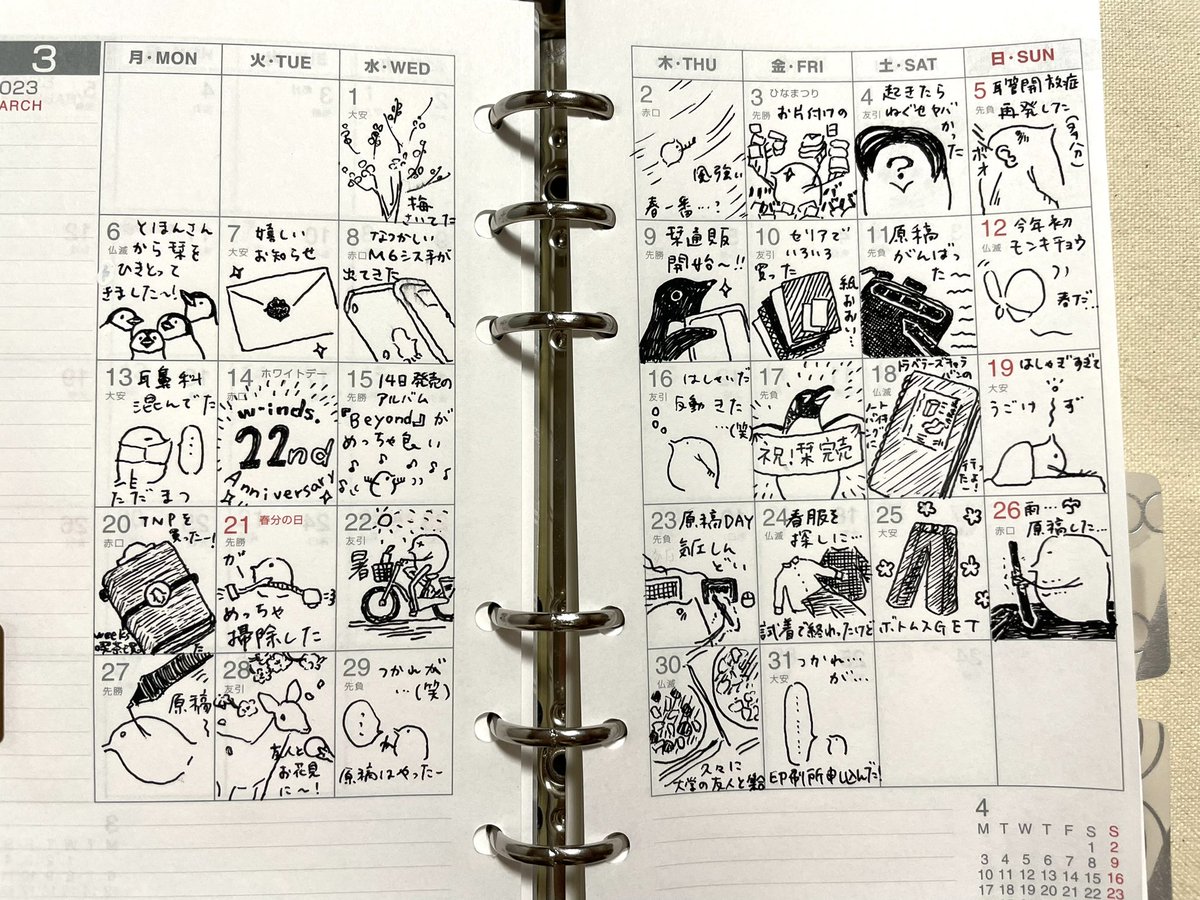 3
2023
MARCH
月・MON
火・TUE
水・WED
木・THU
金・FRI
土・SAT
日・SUN
1
大安
梅
さいてた
2
赤口
風強い
春一番…?
3
ひなまつり
先勝
お片付けの
日
4
友引
起きたら
ねぐせヤバ
かった
?
5
先負
耳管開放症
再発した
(多分)
ボオ
6
仏滅
とほんさん
から栞を
ひきとって
きました〜!
7
大安
嬉しい
お知らせ
8
赤口
なつかしい
M6システ手が
出てきた
9
先勝
栞通販
開始〜!!
10
友引
セリアで
いろいろ
買った
紙おおい
11
先負
原稿
がんばっ
た
12
仏滅
今年初
モンキチョウ
春だ…
13
大安
耳鼻科
混んでた
ただまつ
14
ホワイトデー
赤口
w-inds.
22nd
Anniversary
15
先勝
14日発売の
アルバム
『Beyond』が
めっちゃ良い
16
友引
はしゃいだ
反動きた
(笑)
17
先負
祝!栞完売
18
仏滅
トラベラーズキャラ
バンの
ノート
バイキ
ングに
行っ
たよ!
19
大安
はしゃぎすぎて
うごけず
20
赤口
TNPを
買ったー!
weeks
21
春分の日
先勝
ガー
めっちゃ
掃除した
22
友引
暑
23
先負
原稿DAY
気圧しん
どい
24
仏滅
着服を
探しに…
試着で終わったけど
25
大安
ボトムスGET
26
赤口
雨…
原稿した…
27
先勝
原稿
28
友引
友人と
お花見
に〜!
29
先負
つかれが
…(笑)
原稿はやったー
30
仏滅
久々に
大学の友人と
31
大安
つかれ…
が…
印刷所申込んだ!
4
M T W T F S S
1 2
3 4 5 6 7 8 9
10 11 12 13 14 15 16
17 18 19 20 21 22 23